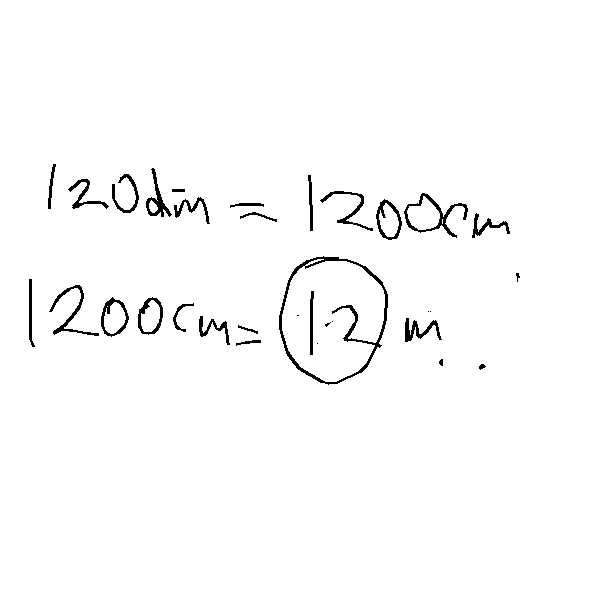 120dm = 1200cm
1200cm = 12 m